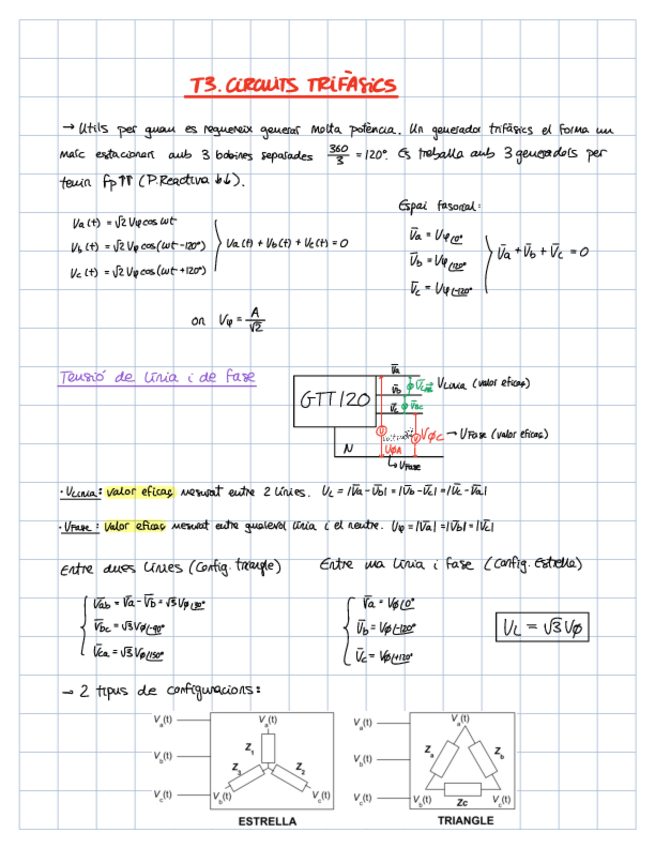 T3. CIRCUITS TRIFÀSICS
→ Útils per quan es requereix generar molta potència. Un generador trifàsics el forma un
marc estacionari amb 3 bobines separades 360/3 = 120°. Es treballa amb 3 generadors per
tenir fp↑↑ (P.Reactiva ↓↓).
Espai fasorial:
Va(t) = √2 Vφ cos ωt
Vb(t) = √2 Vφ cos(ωt -120°)
Vc(t) = √2 Vφ cos(ωt +120°)
Va(t) + Vb(t) + Vc(t) = 0
V̅a = Vφ∠0°
V̅b = Vφ∠120°
V̅c = Vφ∠-120°
V̅a + V̅b + V̅c = 0
on Vφ = A/√2
Tensió de línia i de fase
GTT 120
N
V̅a
V̅b
V̅c
V̅BC
VLínia (valor eficaç)
VØA
VØC → VFase (valor eficaç)
↳ VFase
· VLínia: valor eficaç mesurat entre 2 línies. VL = |V̅a - V̅b| = |V̅b - V̅c| = |V̅c - V̅a|
· VFase: valor eficaç mesurat entre qualsevol línia i el neutre. Vφ = |V̅a| = |V̅b| = |V̅c|
Entre dues línies (Config. triangle)
Entre una línia i fase (Config. Estrella)
V̅ab = V̅a - V̅b = √3 Vφ∠30°
V̅bc = √3 VØ∠-90°
V̅ca = √3 VØ∠150°
V̅a = VØ∠0°
V̅b = VØ∠-120°
V̅c = VØ∠+120°
VL = √3 VØ
→ 2 tipus de configuracions:
Va(t)
Vb(t)
Vc(t)
Va(t)
Z1
Z3
Z2
Vb(t)
Vc(t)
ESTRELLA
Va(t)
Vb(t)
Vc(t)
Va(t)
Za
Zb
Zc
Vb(t)
Vc(t)
TRIANGLE